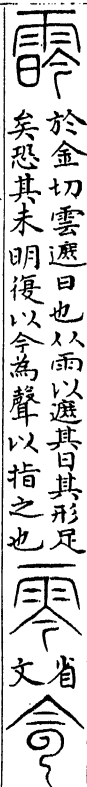 於金切雲遮日也从雨以遮其日其形足
矣恐其未明復以今為聲以指之也
省
文